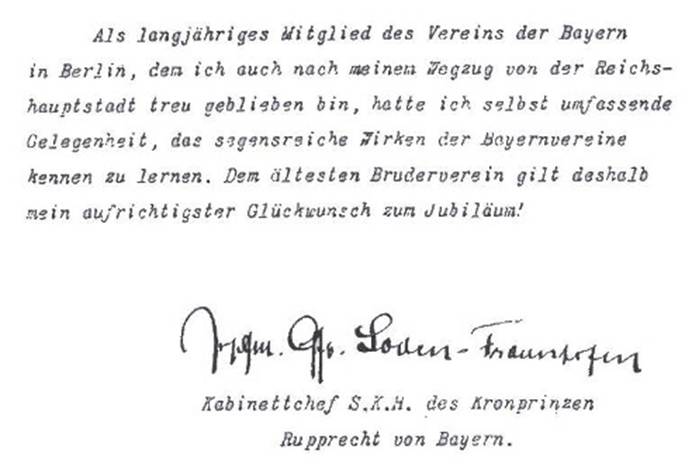 Als langjähriges Mitglied des Vereins der Bayern
in Berlin, dem ich auch nach meinem Wegzug von der Reichs-
hauptstadt treu geblieben bin, hatte ich selbst umfassende
Gelegenheit, das segensreiche Wirken der Bayernvereine
kennen zu lernen. Dem ältesten Bruderverein gilt deshalb
mein aufrichtigster Glückwunsch zum Jubiläum!
Soden-Fraunhofen
Kabinettchef S.K.H. des Kronprinzen
Rupprecht von Bayern.